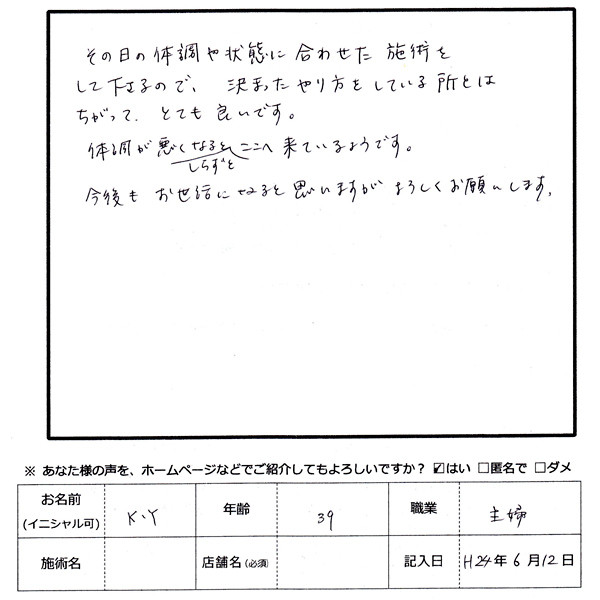 その日の体調や状態に合わせた施術を
して下さるので、決まったやり方をしている所とは
ちがって、とても良いです。
体調が悪くなるとしらずとここへ来ているようです。
今後もお世話になると思いますがよろしくお願いします。
※ あなた様の声を、ホームページなどでご紹介してもよろしいですか？ ☑はい □匿名で □ダメ
お名前(イニシャル可) K.Y 年齢 39 職業 主婦
施術名 店舗名(必須) 記入日 H24年6月12日